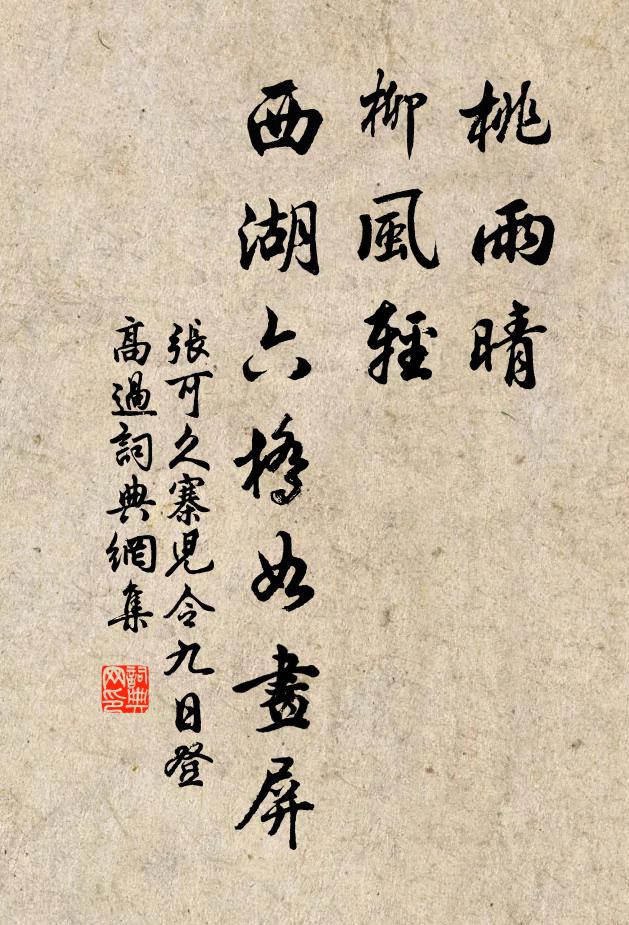 桃雨晴
柳風輕
西湖六橋如畫屏
張可久寨兒令九日登
高過詞典網集
詞典網印